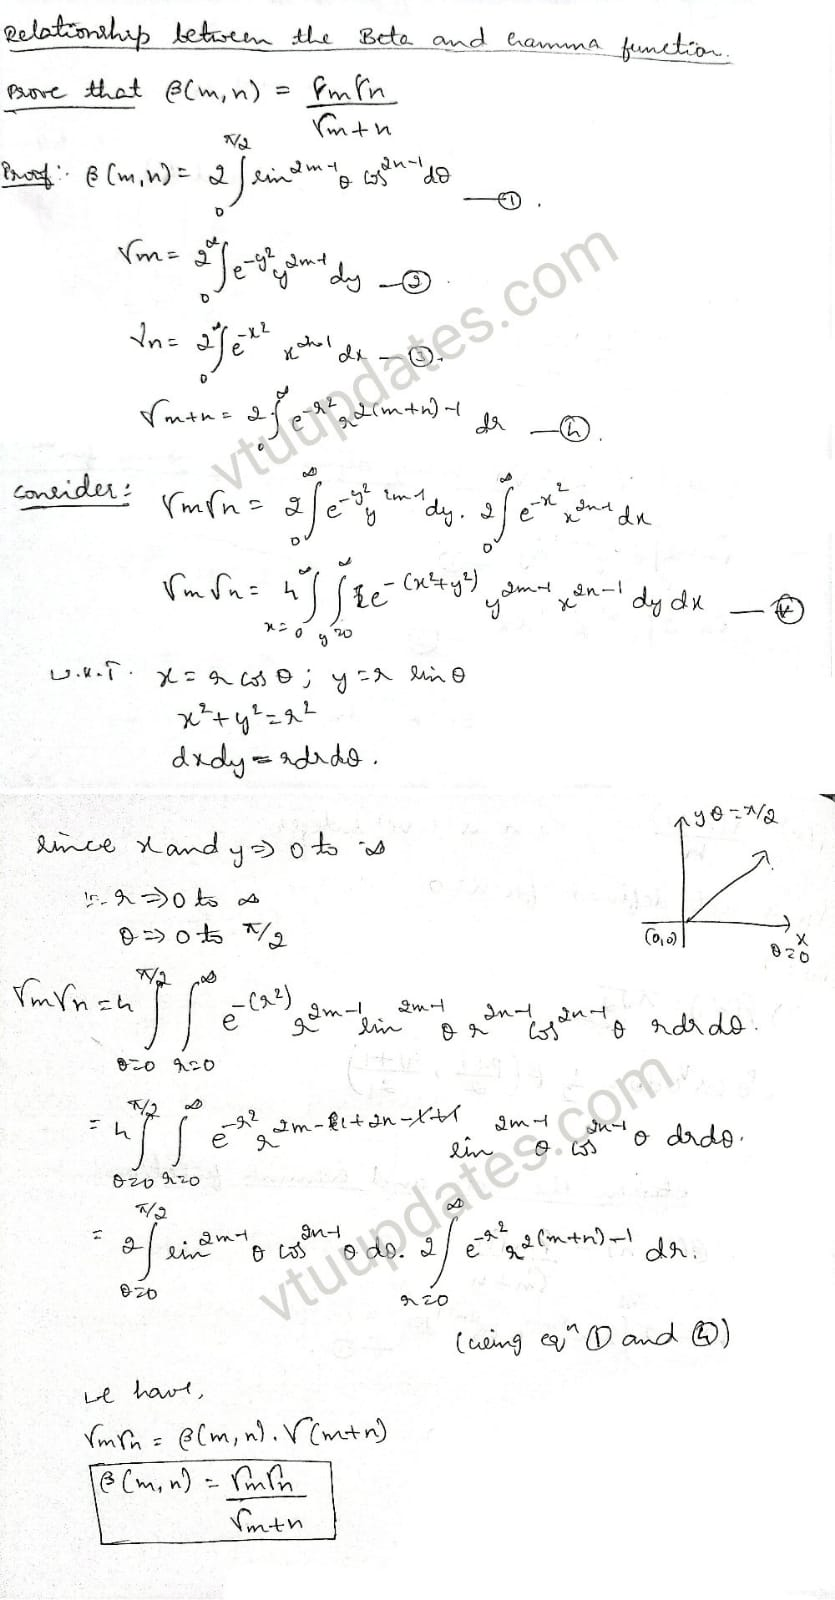 Relationship between the Beta and Gamma function.
Prove that β(m,n) = ΓmΓn / Γm+n
Proof:- β(m,n) = 2∫₀^{π/2} sin^{2m-1}θ cos^{2n-1} dθ —①.
Γm = 2∫₀^∞ e^{-y²} y^{2m-1} dy —②.
Γn = 2∫₀^∞ e^{-x²} x^{2n-1} dx —③.
Γm+n = 2∫₀^∞ e^{-r²} r^{2(m+n)-1} dr —④.
Consider: ΓmΓn = 2∫₀^∞ e^{-y²} y^{2m-1} dy. 2∫₀^∞ e^{-x²} x^{2n-1} dx
ΓmΓn = 4∫_{x=0}^∞ ∫_{y=0}^∞ e^{-(x²+y²)} y^{2m-1} x^{2n-1} dy dx —
W.K.T. x = r cos θ; y = r sin θ
x²+y² = r²
dxdy = rdrdθ.
since x and y ⇒ 0 to ∞
∴ r ⇒ 0 to ∞
θ ⇒ 0 to π/2
y θ = π/2
(0,0)
x
θ=0
ΓmΓn = 4∫_{θ=0}^{π/2} ∫_{r=0}^∞ e^{-(r²)} r^{2m-1} sin^{2m-1}θ r^{2n-1} cos^{2n-1}θ rdrdθ.
= 4∫_{θ=0}^{π/2} ∫_{r=0}^∞ e^{-r²} r^{2m-1+2n-1+1} sin^{2m-1}θ cos^{2n-1}θ drdθ.
= 2∫_{θ=0}^{π/2} sin^{2m-1}θ cos^{2n-1}θ dθ. 2∫_{r=0}^∞ e^{-r²} r^{2(m+n)-1} dr.
(using eqⁿ ① and ④)
we have,
ΓmΓn = β(m,n). Γ(m+n)
β(m,n) = ΓmΓn / Γm+n
vtuupdates.com
vtuupdates.com